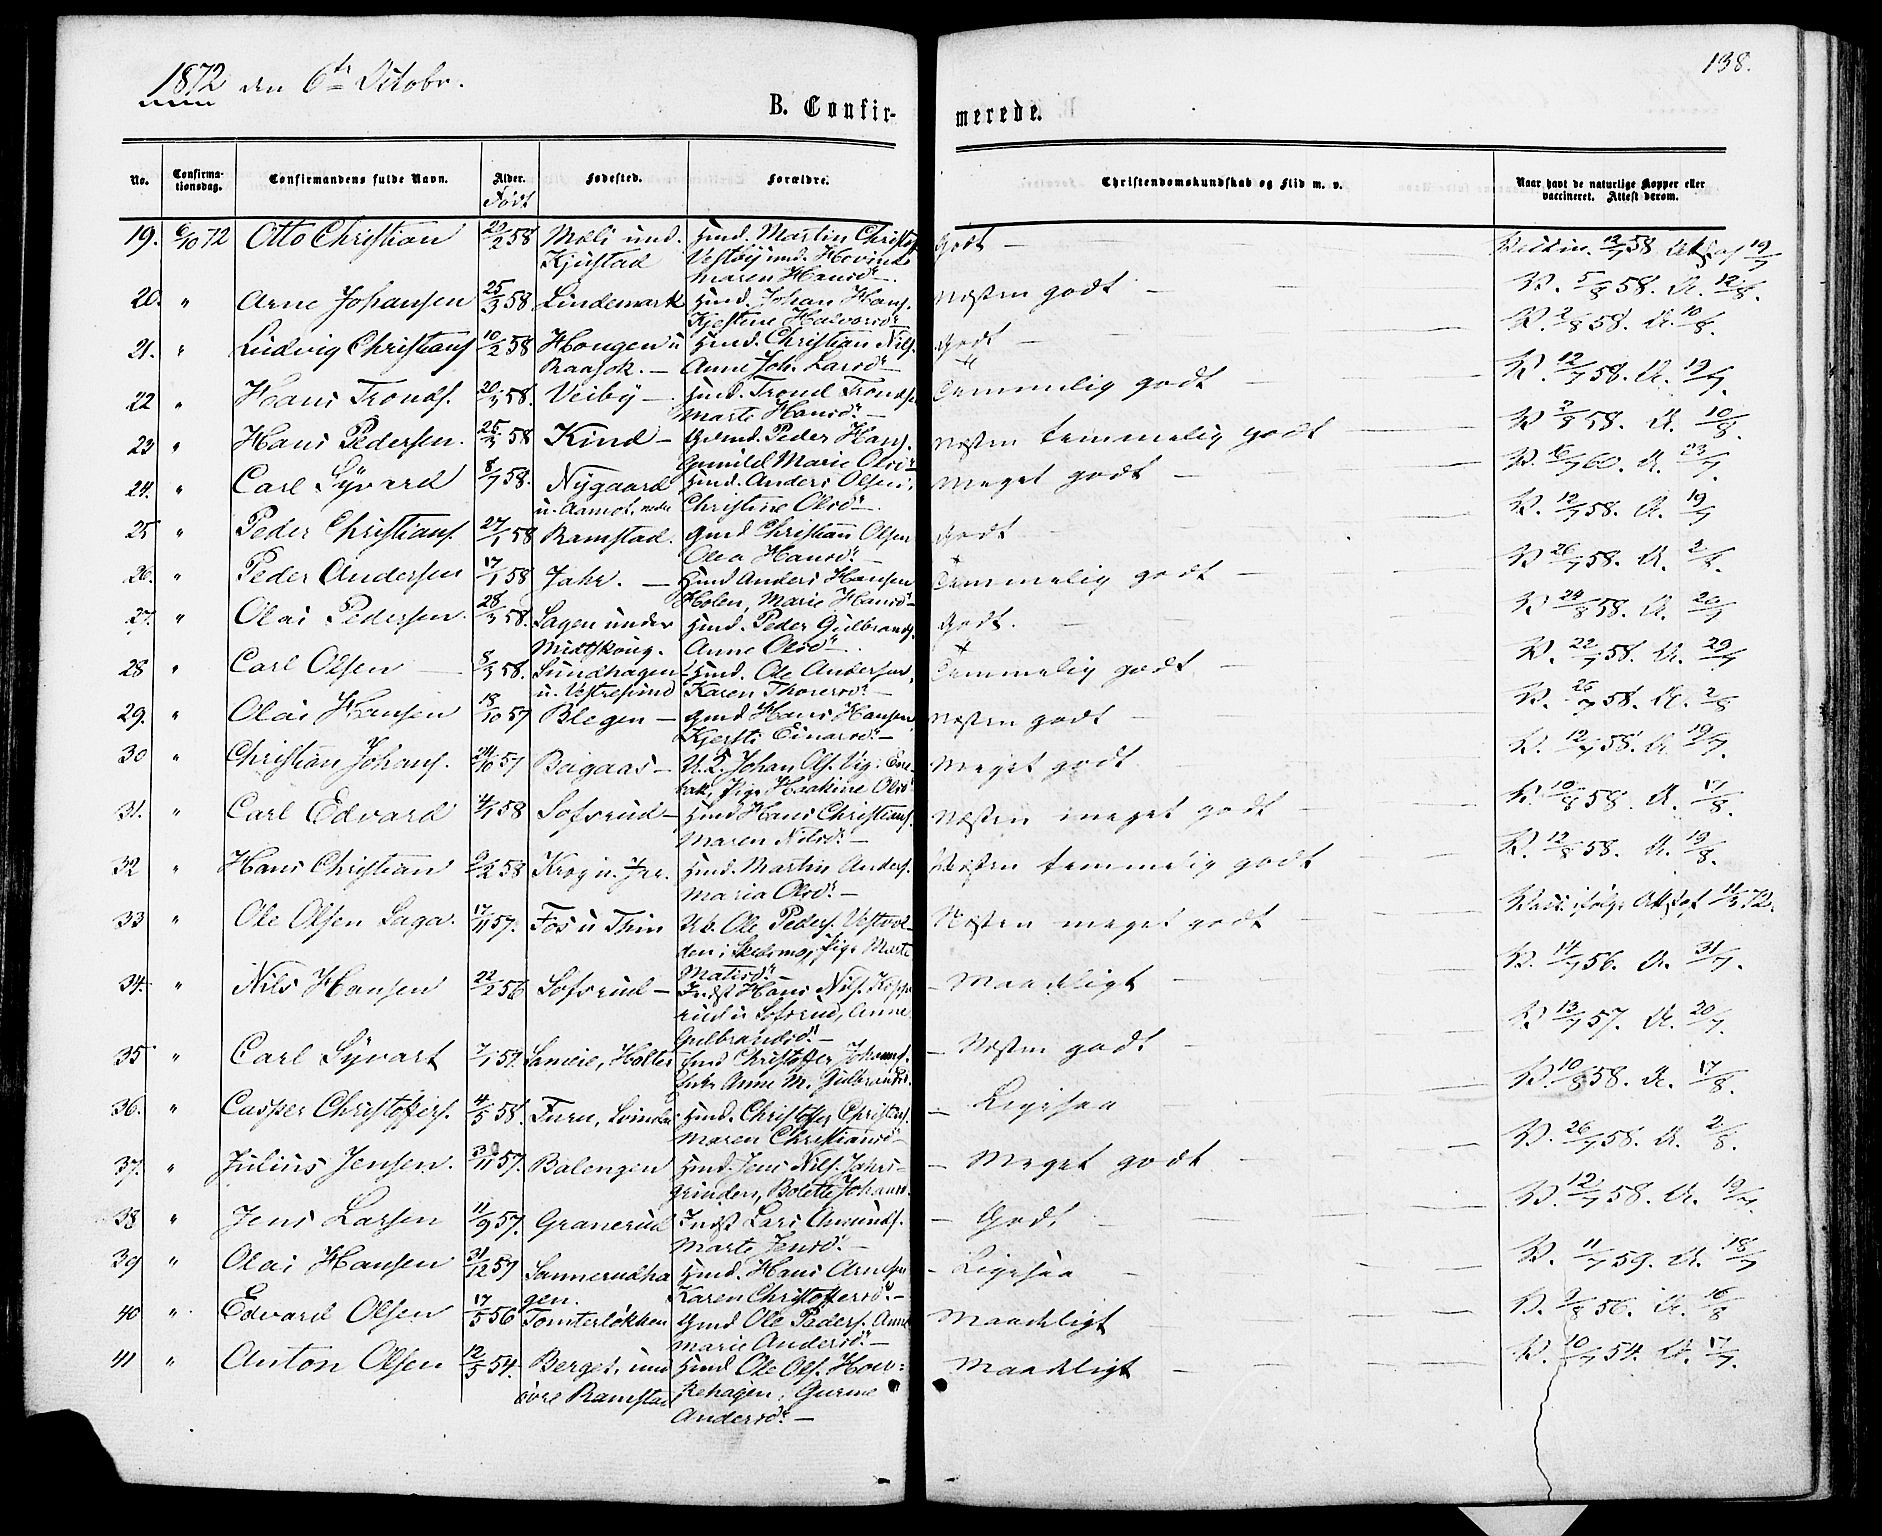 1872 den 6te Octobr.
138.
B. Confir-
merede.
No.
Confirma-
tionsdag.
Confirmandens fulde Navn.
Alder.
Født
Fødested.
Forældre.
Christendomskundskab og Flid m. v.
Naar havt de naturlige Kopper eller
vaccineret. Attest derom.
19. 6/10 72 Otto Christian 20/2 58 Mæli und. Hmd. Martin Christof Godt — 12/7 58 Att. af 19/7
Kjustad Vestby und. Hovind
Maren Hansd.
20. " Arne Johansen 25/3 58 Lindemark Hmd. Johan Hans. Næsten godt — V. 5/8 58. A. 12/8.
Kjestine Halvorsd.
21. " Ludvig Christians 10/2 58 Haugen u Hmd. Christian Nils. Godt — V. 2/8 58. A. 10/8.
Raasok. — Anne Joh. Larsd.
22 " Hans Tronds. 20/4 58. Veiby — Hmd. Trond Tronds. Temmelig godt V. 12/7 58. A. 19/7.
Marte Hansd. —
23 " Hans Pedersen. 25/3 58 Kind — Gmd. Peder Hans. Næsten temmelig godt V 3/8 58. A. 10/8.
Gunild Marie Olsd.
24. " Carl Syvard 8/7 58. Nygaard Hmd. Anders Olsen, Meget godt V. 16/7 60. A. 23/7.
u. Aamot, nedre Christine Olsd.
25 " Peder Christians. 27/1 58 Ramstad. Gmd Christian Olsen Godt V. 12/7 58. A. 19/7
Olea Hansd.
26. " Peder Andersen 17/1 58 Jahr. — Hmd Anders Hansen Temmelig godt — V 26/7 58. A. 2/8.
Holen, Marie Hansd.
27. " Olai Pedersen. 28/3 58. Sagen under Hmd. Peder Gulbrands. Godt. — V 24/8 58. A. 20/7
Midtskoug. Anne Olsd.
28 " Carl Olsen 8/3 58. Sundhagen Hmd. Ole Andersen, Temmelig godt — V. 22/7 58. A. 29/7
u. Vestresund Karen Thoresd. —
29. " Olai Hansen 18/10 57 Blegen — Gmd Hans Hansen, Næsten godt V. 26/7 58. A. 2/8
Kjersti Einarsd. —
30 " Christian Johans. 24/10 57 Baagaas — U. E. Johan Ols. Vig: Ene- Meget godt V. 12/7 58. A 19/7.
bak, Pige Haakine Olsd.
31. " Carl Edvard 4/1 58 Sofsrud — Hmd Hans Christians. Næsten meget godt V. 10/8 58. A. 17/8.
Maren Nilsd. —
32 " Hans Christian 9/2 58 Krog u. Jar. Hmd. Martin Anders. Næsten temmelig godt V. 12/8 58. A. 19/8.
Maria Olsd. —
33 " Ole Olsen Saga. 17/11 57. Fos u Thun Ub. Ole Peders. Vestvol- Næsten meget godt Vacc. ifølge Att. af 11/5 72.
den i Skedsmo, Pige Marte
Matisd. —
34. " Nils Hansen 22/2 56 Sofsrud — Indst Hans Nils. Maadeligt V. 14/7 56. A. 31/7.
rud u Sofsrud, Anne
Gulbrandsd.
35 " Carl Syvart 7/1 57. Holter Hmd Christoffer Johannes. Næsten godt V. 13/7 57. A. 20/7.
Anne M. Gulbrandsd.
36. " Casper Christoffers. 4/5 58. Furu, Hmd. Christoffer Christians. Ligesaa V. 10/8 58. A. 17/8.
Maren Christiansd.
37. " Julius Jensen. 30/11 57. Balengen Hmd. Jens Nils. Jahrs- Meget godt V. 26/7 58. A. 2/8.
grinden, Bolette Johans.
38 " Jens Larsen 11/9 57. Granerud Indst Lars Amunds. Godt V. 12/7 58. A. 19/7.
Marte Jensd. —
39 " Olai Hansen 31/12 57 Sannerudha Hmd. Hans Arnesen Ligesaa V. 11/7 59. A. 18/7
gen. Karen Christoffersd. —
40 " Edvard Olsen 17/5 56 Tomterløkken Gmd Ole Peders. Anne Maadeligt V. 9/8 56. A. 16/8
Marie Andersd. —
41 " Anton Olsen 12/5 54. Berget, und Hmd Ole Ols. Hau- Maadeligt V. 10/7 54. A. 17/7.
øvre Ramstad kehagen, Gurine
Andersd. —